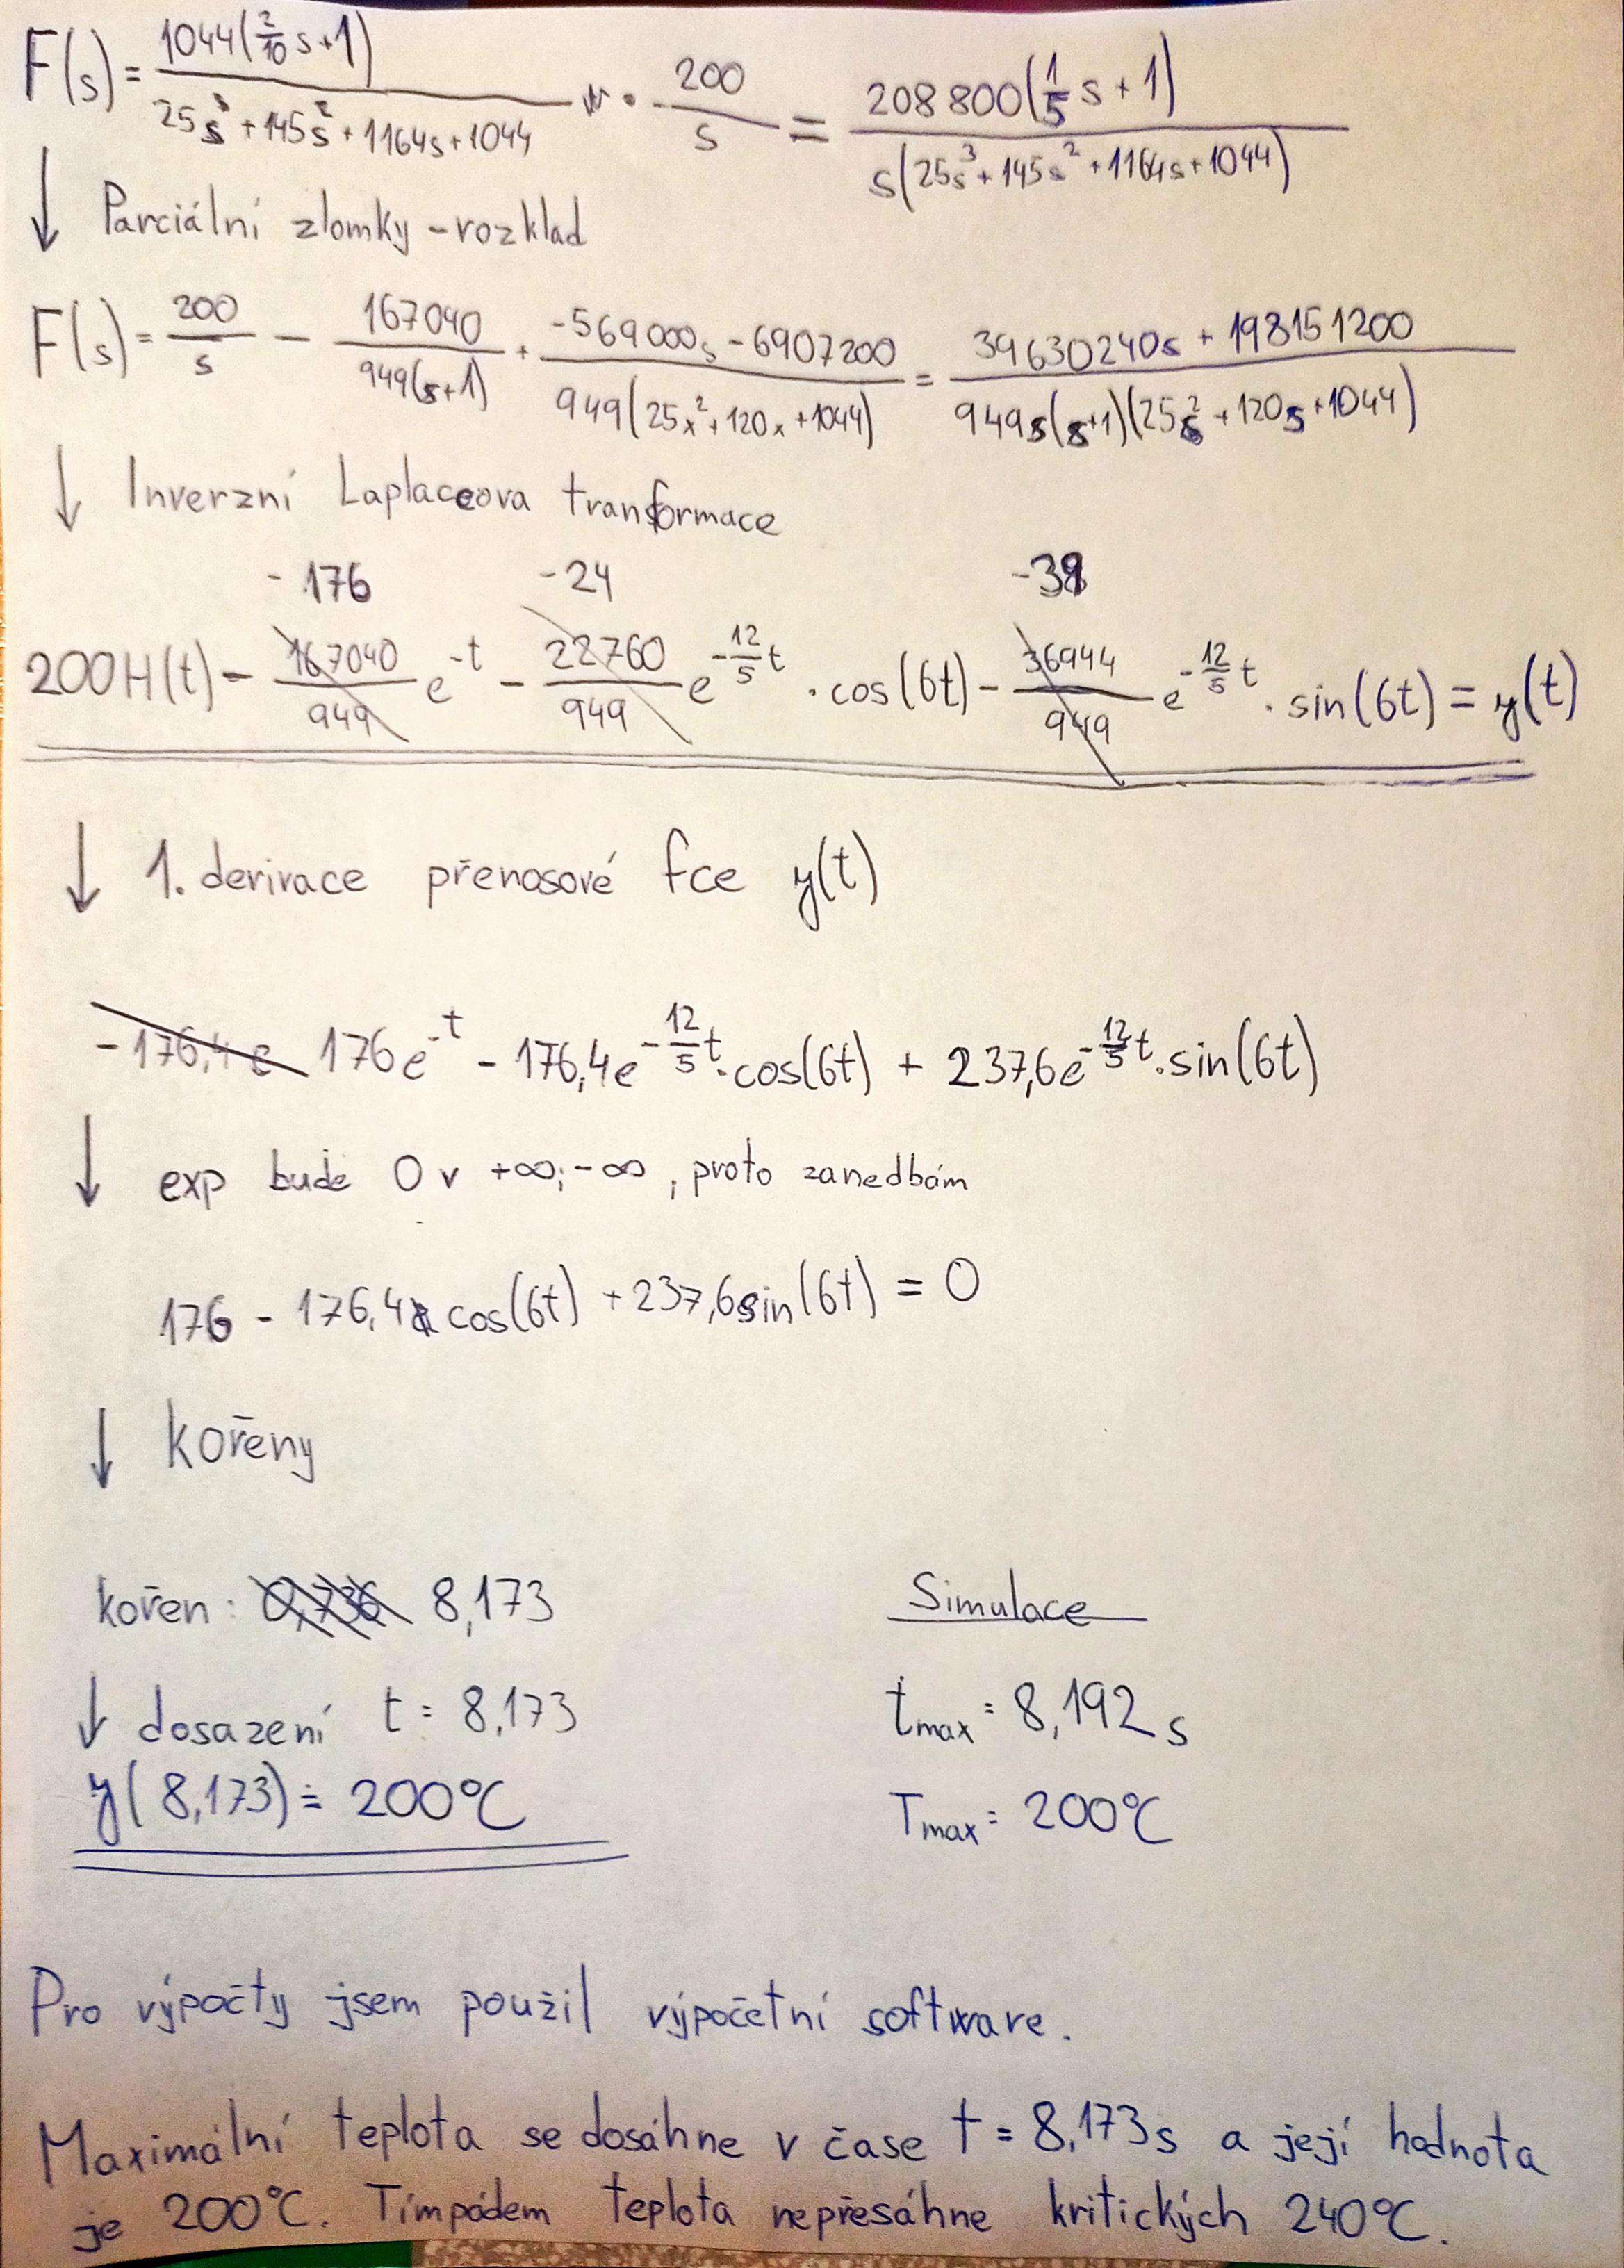 F(s) = 1044(2/10 s+1) / 25s³+145s²+1164s+1044 · 200/s = 208 800(1/5 s+1) / s(25s³+145s²+1164s+1044)
↓ Parciální zlomky – rozklad
F(s) = 200/s − 167040/949(s+1) + -569000s - 6907200/949(25x²+120x+1044) = 39630240s + 198151200/949s(s+1)(25s²+120s+1044)
↓ Inverzní Laplaceova tranformace
- 176 -24 -39
200H(t) − 167040/949 e^-t − 22760/949 e^-12/5t · cos(6t) − 36944/949 e^-12/5t · sin(6t) = y(t)
↓ 1. derivace přenosové fce y(t)
-176,4e 176e^-t − 176,4e^-12/5t · cos(6t) + 237,6e^-12/5t · sin(6t)
↓ exp bude 0 v +∞;-∞, proto zanedbám
176 - 176,4 cos(6t) + 237,6sin(6t) = 0
↓ kořeny
kořen: 0,736 8,173
Simulace
↓ dosazení t = 8,173
tmax = 8,192 s
y(8,173) = 200°C
Tmax = 200°C
Pro výpočty jsem použil výpočetní software.
Maximální teplota se dosáhne v čase t = 8,173s a její hodnota
je 200°C. Tímpádem teplota nepřesáhne kritických 240°C.